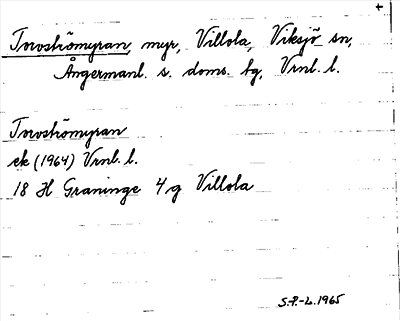 Torvströmyran, myr, Villola, Viksjö sn,
Ångermanl. s. doms. bg, Vrnl. l.
Torvströmyran
ek (1964) Vrnl. l.
18 H Graninge 4 g Villola
S.P.-L. 1965